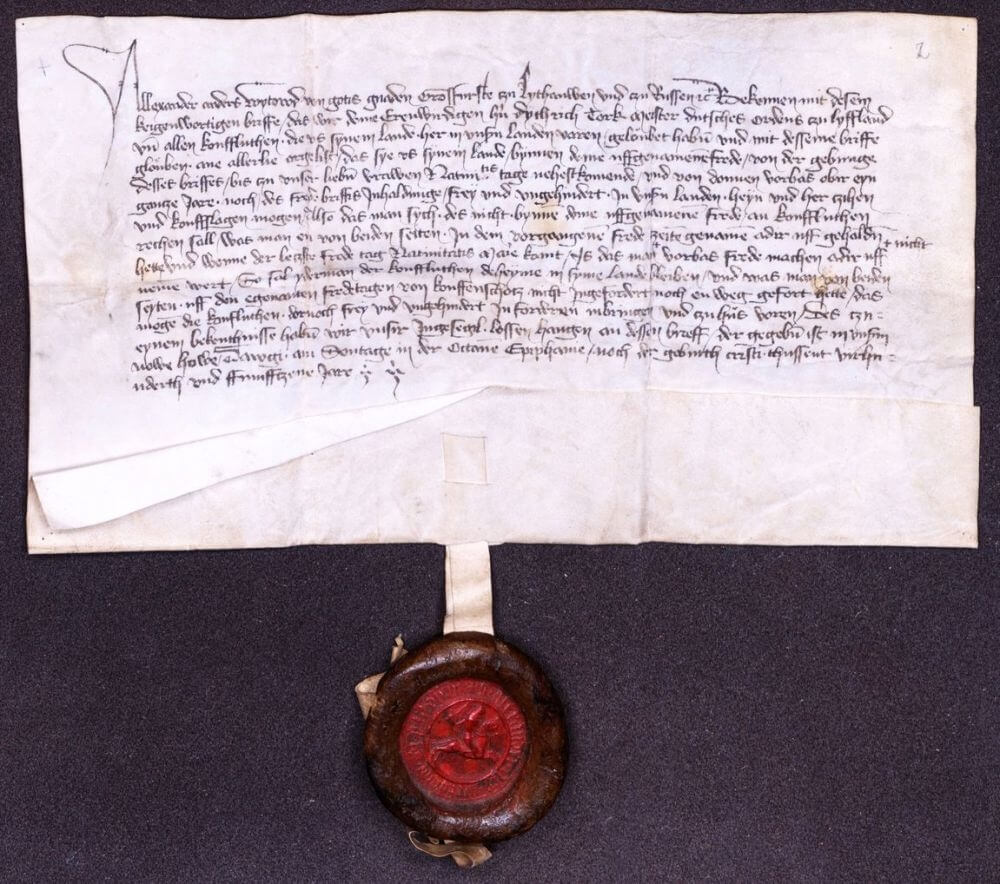 2
Allexander anders wytowd von gotis gnaden Grosfurste czu Lythauwen und czu Russen etc Bekennen mit desem
keigenwortigen briffe, das wir deme Erenwirdigen hern Dytherich Tork meister dutsches ordens czu lyffland
vnd allen konffluthen, die vs synem lande her in vnsern landen varen, gelowbet habin und mit desseme briffe
glouben, ane allerlie argelist, das sye vs synem lande bynnen deme uffgenomenen frede, von der gebunge
desses briffes, bis czu unser liebin vrawen Nativitatis tage nehestkomende, und von dannen vorbas obir eyn
gantze Jare, noch des frede briffis Inhaldunge, frey und ungehindert, In vnsern landen, heyn und her czihen
und konffslagen mogen, Also das man sych, des nicht bynne deme uffgenomene frede, an konffluthen
rechen sall, was man en von beiden seiten, In dem vorgangene frede zeite genome adir uff gehaldin
hette und wenne der leczste frede tag Nativitatis Marie komt, Is das man vorbas frede machen adir uff † nicht
neme wert, So sal yderman der konffluthen deheyme in syme lande bleiben, und was man von beiden
seyten, uff den egenanten fredetagen von kouffenschatz nicht Ingefordert noch en weg gefort hette, das
moge die konfluthen, dornoch frey und ungehindert Infordern inbringen und czu hus voren, Des czu
eynem bekentnisse habin wir vnsir Ingesegil lossen hangen an dessen brieff, der gegebin ist in vnsirm
nowe howe, Dawgi, am Sontage in der Octave Epiphanie, noch der geburth cristi thussent virhun
nderth und ffumffczene Jare